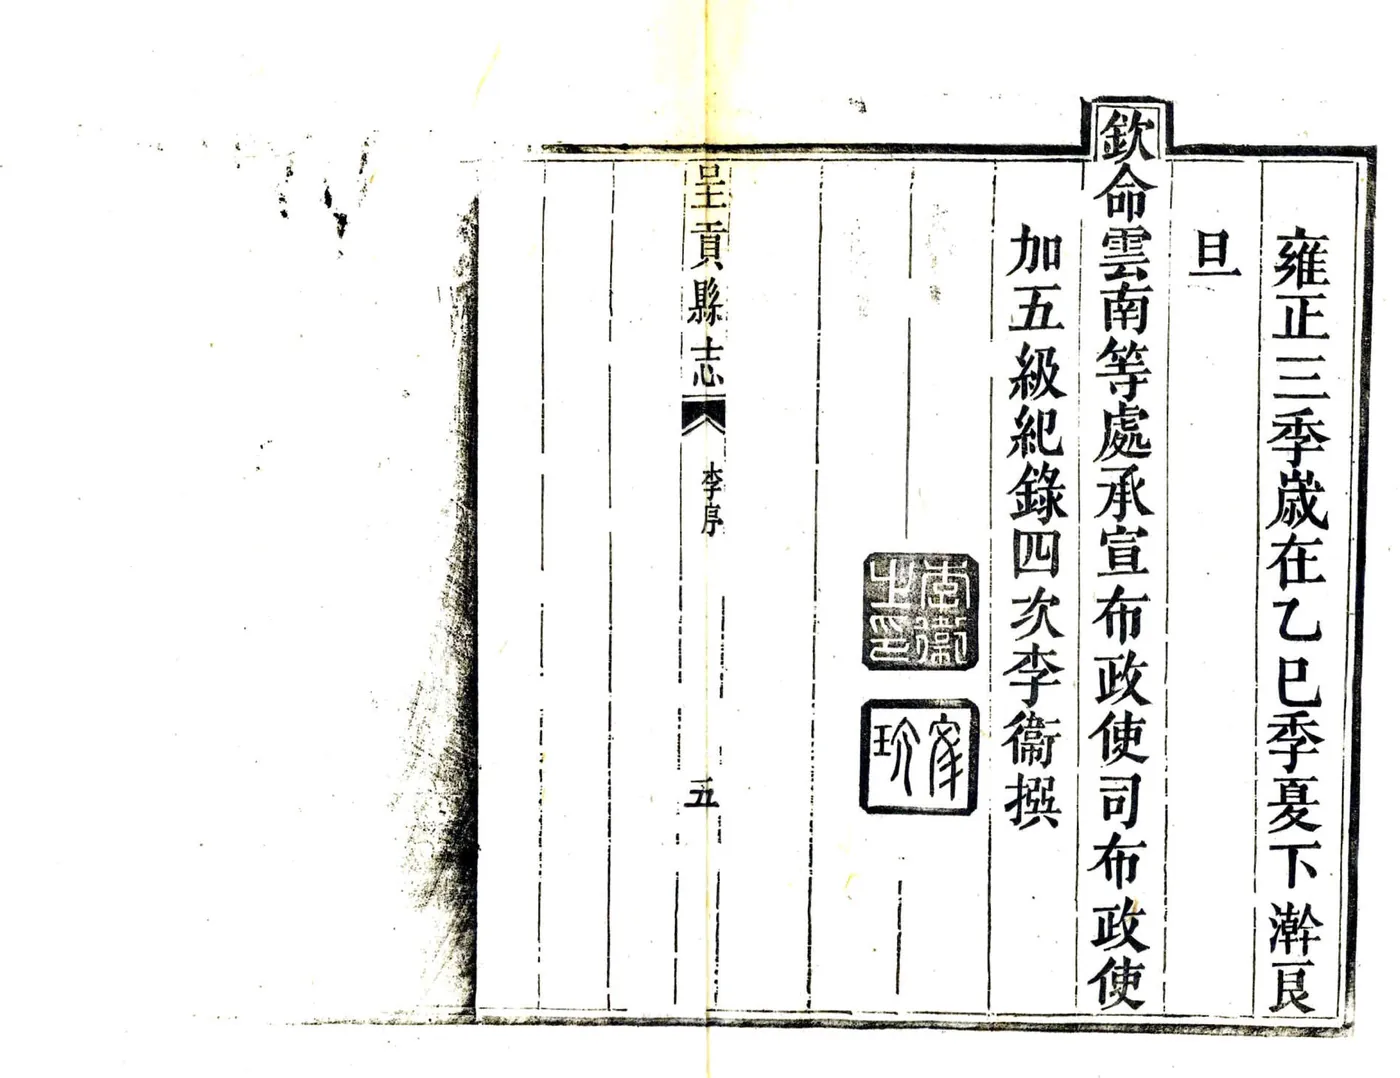 雍正三秊歲在乙巳季夏下澣良
旦
欽命雲南等處承宣布政使司布政使
加五級紀錄四次李衞撰
李衞之印
呈貢縣志
李序
五